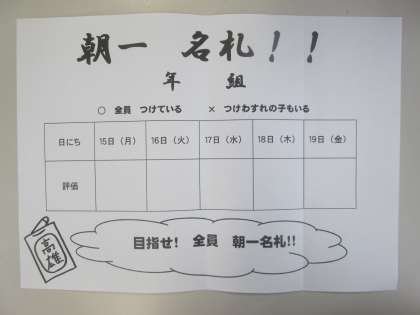 朝一 名札！！
年 組
○ 全員 つけている × つけわすれの子もいる
日にち 15日（月） 16日（火） 17日（水） 18日（木） 19日（金）
評価
高雄
目指せ！ 全員 朝一名札!!